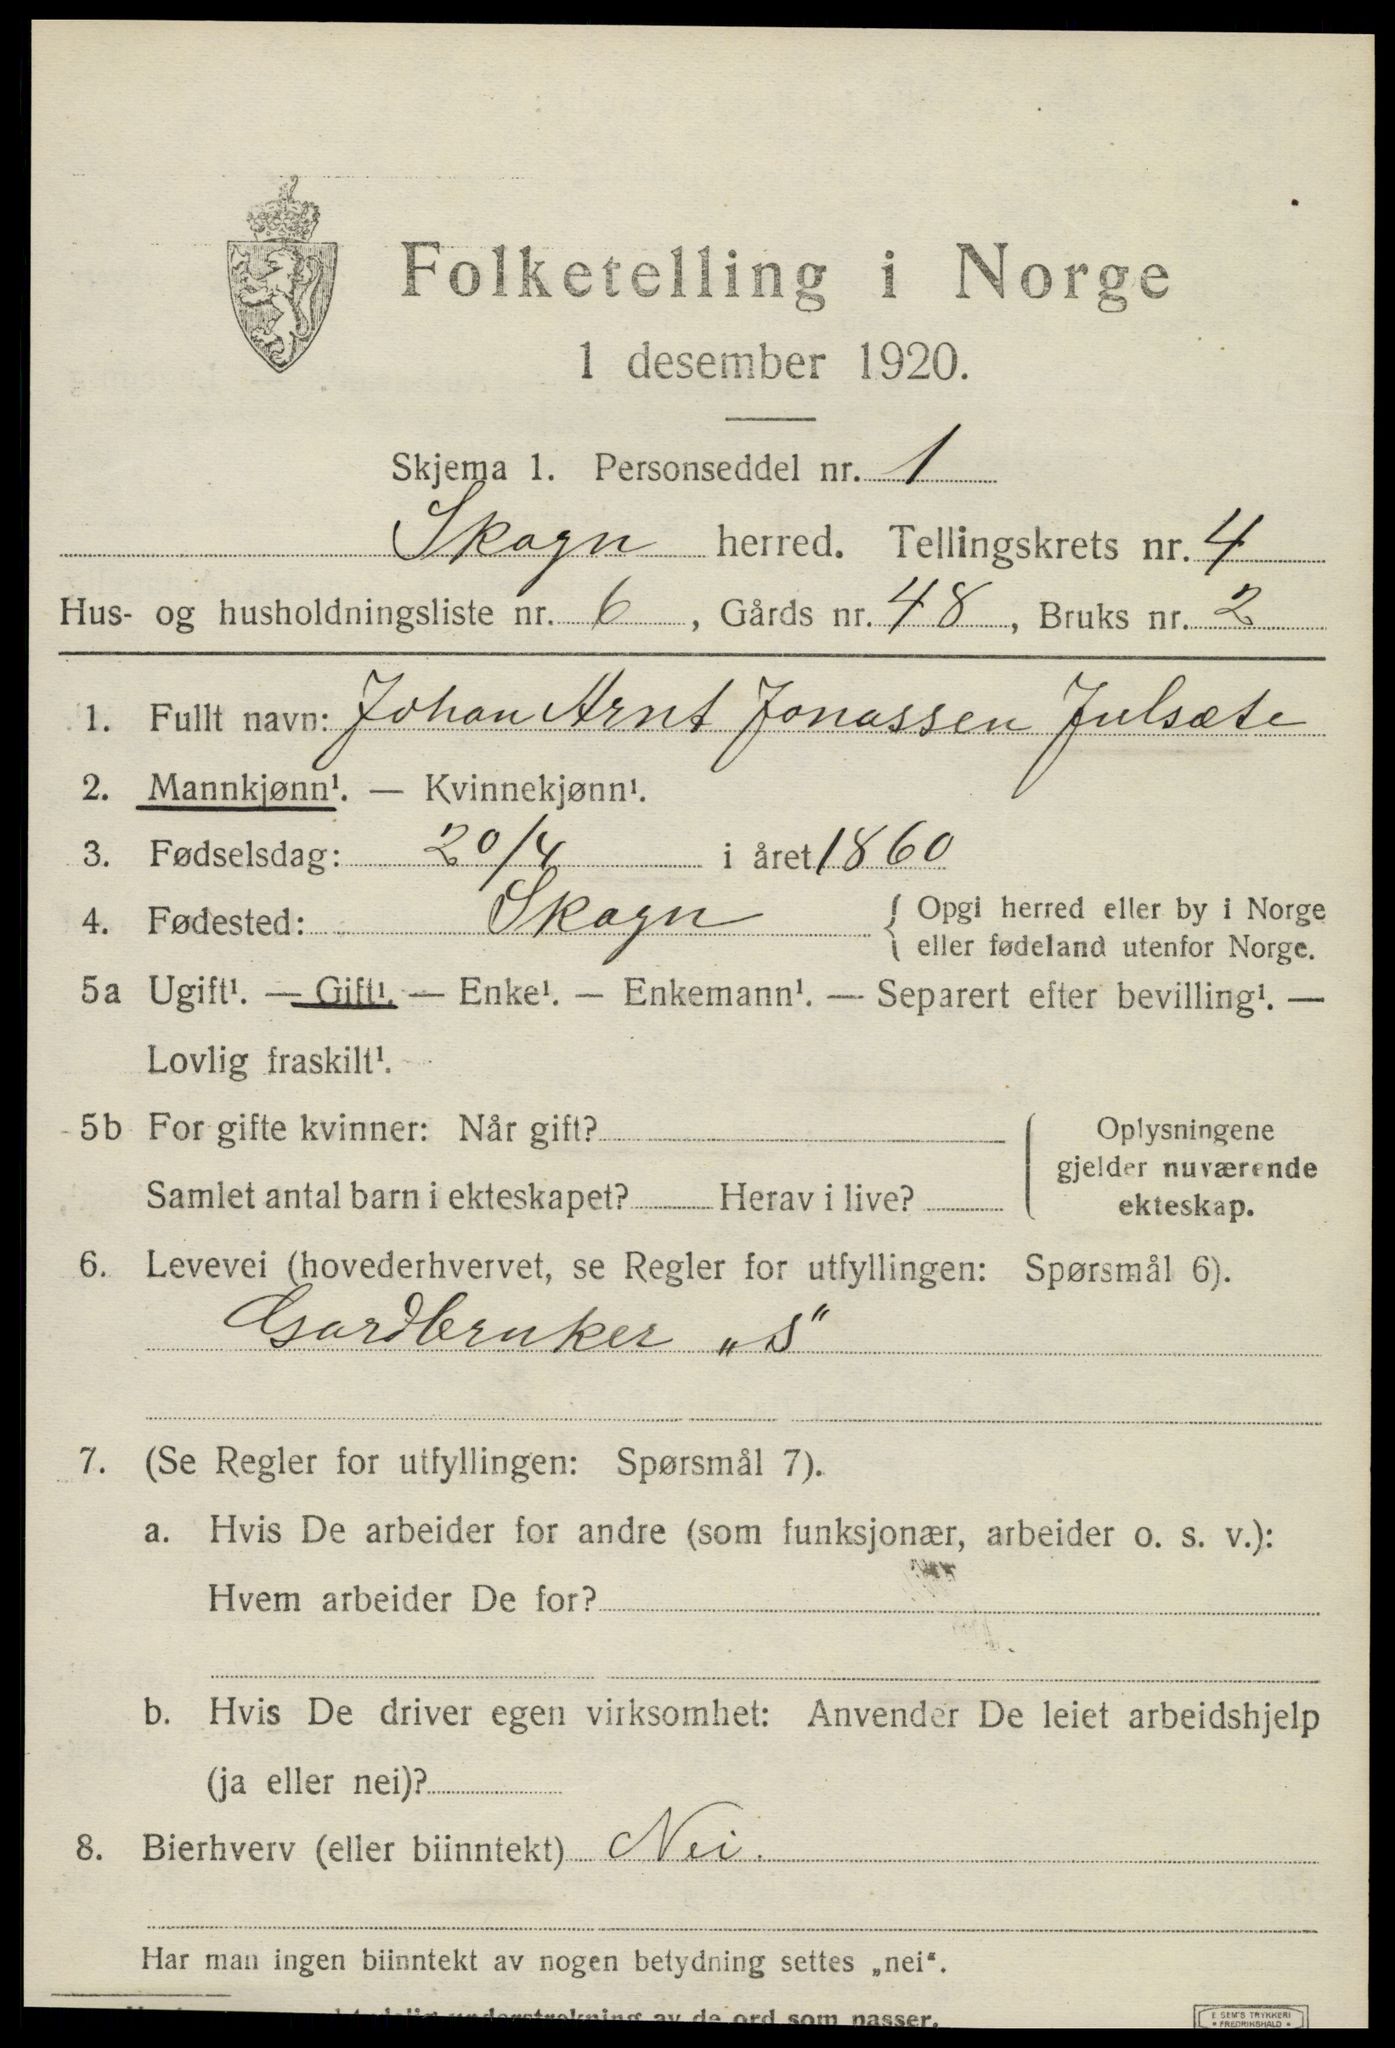 Folketelling i Norge
1 desember 1920.
Skjema 1. Personseddel nr. 1
Skogn herred. Tellingskrets nr. 4
Hus- og husholdningsliste nr. 6, Gårds nr. 48, Bruks nr. 2
1. Fullt navn: Johan Arnt Jonassen Julsæte
2. Mannkjønn¹. — Kvinnekjønn¹.
3. Fødselsdag: 20/4 i året 1860
4. Fødested: Skogn { Opgi herred eller by i Norge
eller fødeland utenfor Norge.
5a Ugift¹. — Gift¹. — Enke¹. — Enkemann¹. — Separert efter bevilling¹. —
Lovlig fraskilt¹.
5b For gifte kvinner: Når gift?
Samlet antal barn i ekteskapet? Herav i live?
Oplysningene
gjelder nuværende
ekteskap.
6. Levevei (hovederhvervet, se Regler for utfyllingen: Spørsmål 6).
Gardbruker „S“
7. (Se Regler for utfyllingen: Spørsmål 7).
a. Hvis De arbeider for andre (som funksjonær, arbeider o. s. v.):
Hvem arbeider De for?
b. Hvis De driver egen virksomhet: Anvender De leiet arbeidshjelp
(ja eller nei)?
8. Bierhverv (eller biinntekt) Nei.
Har man ingen biinntekt av nogen betydning settes „nei“.
understrekning av de ord som passer.
E. SEM'S TRYKKERI
• FREDRIKSHALD •